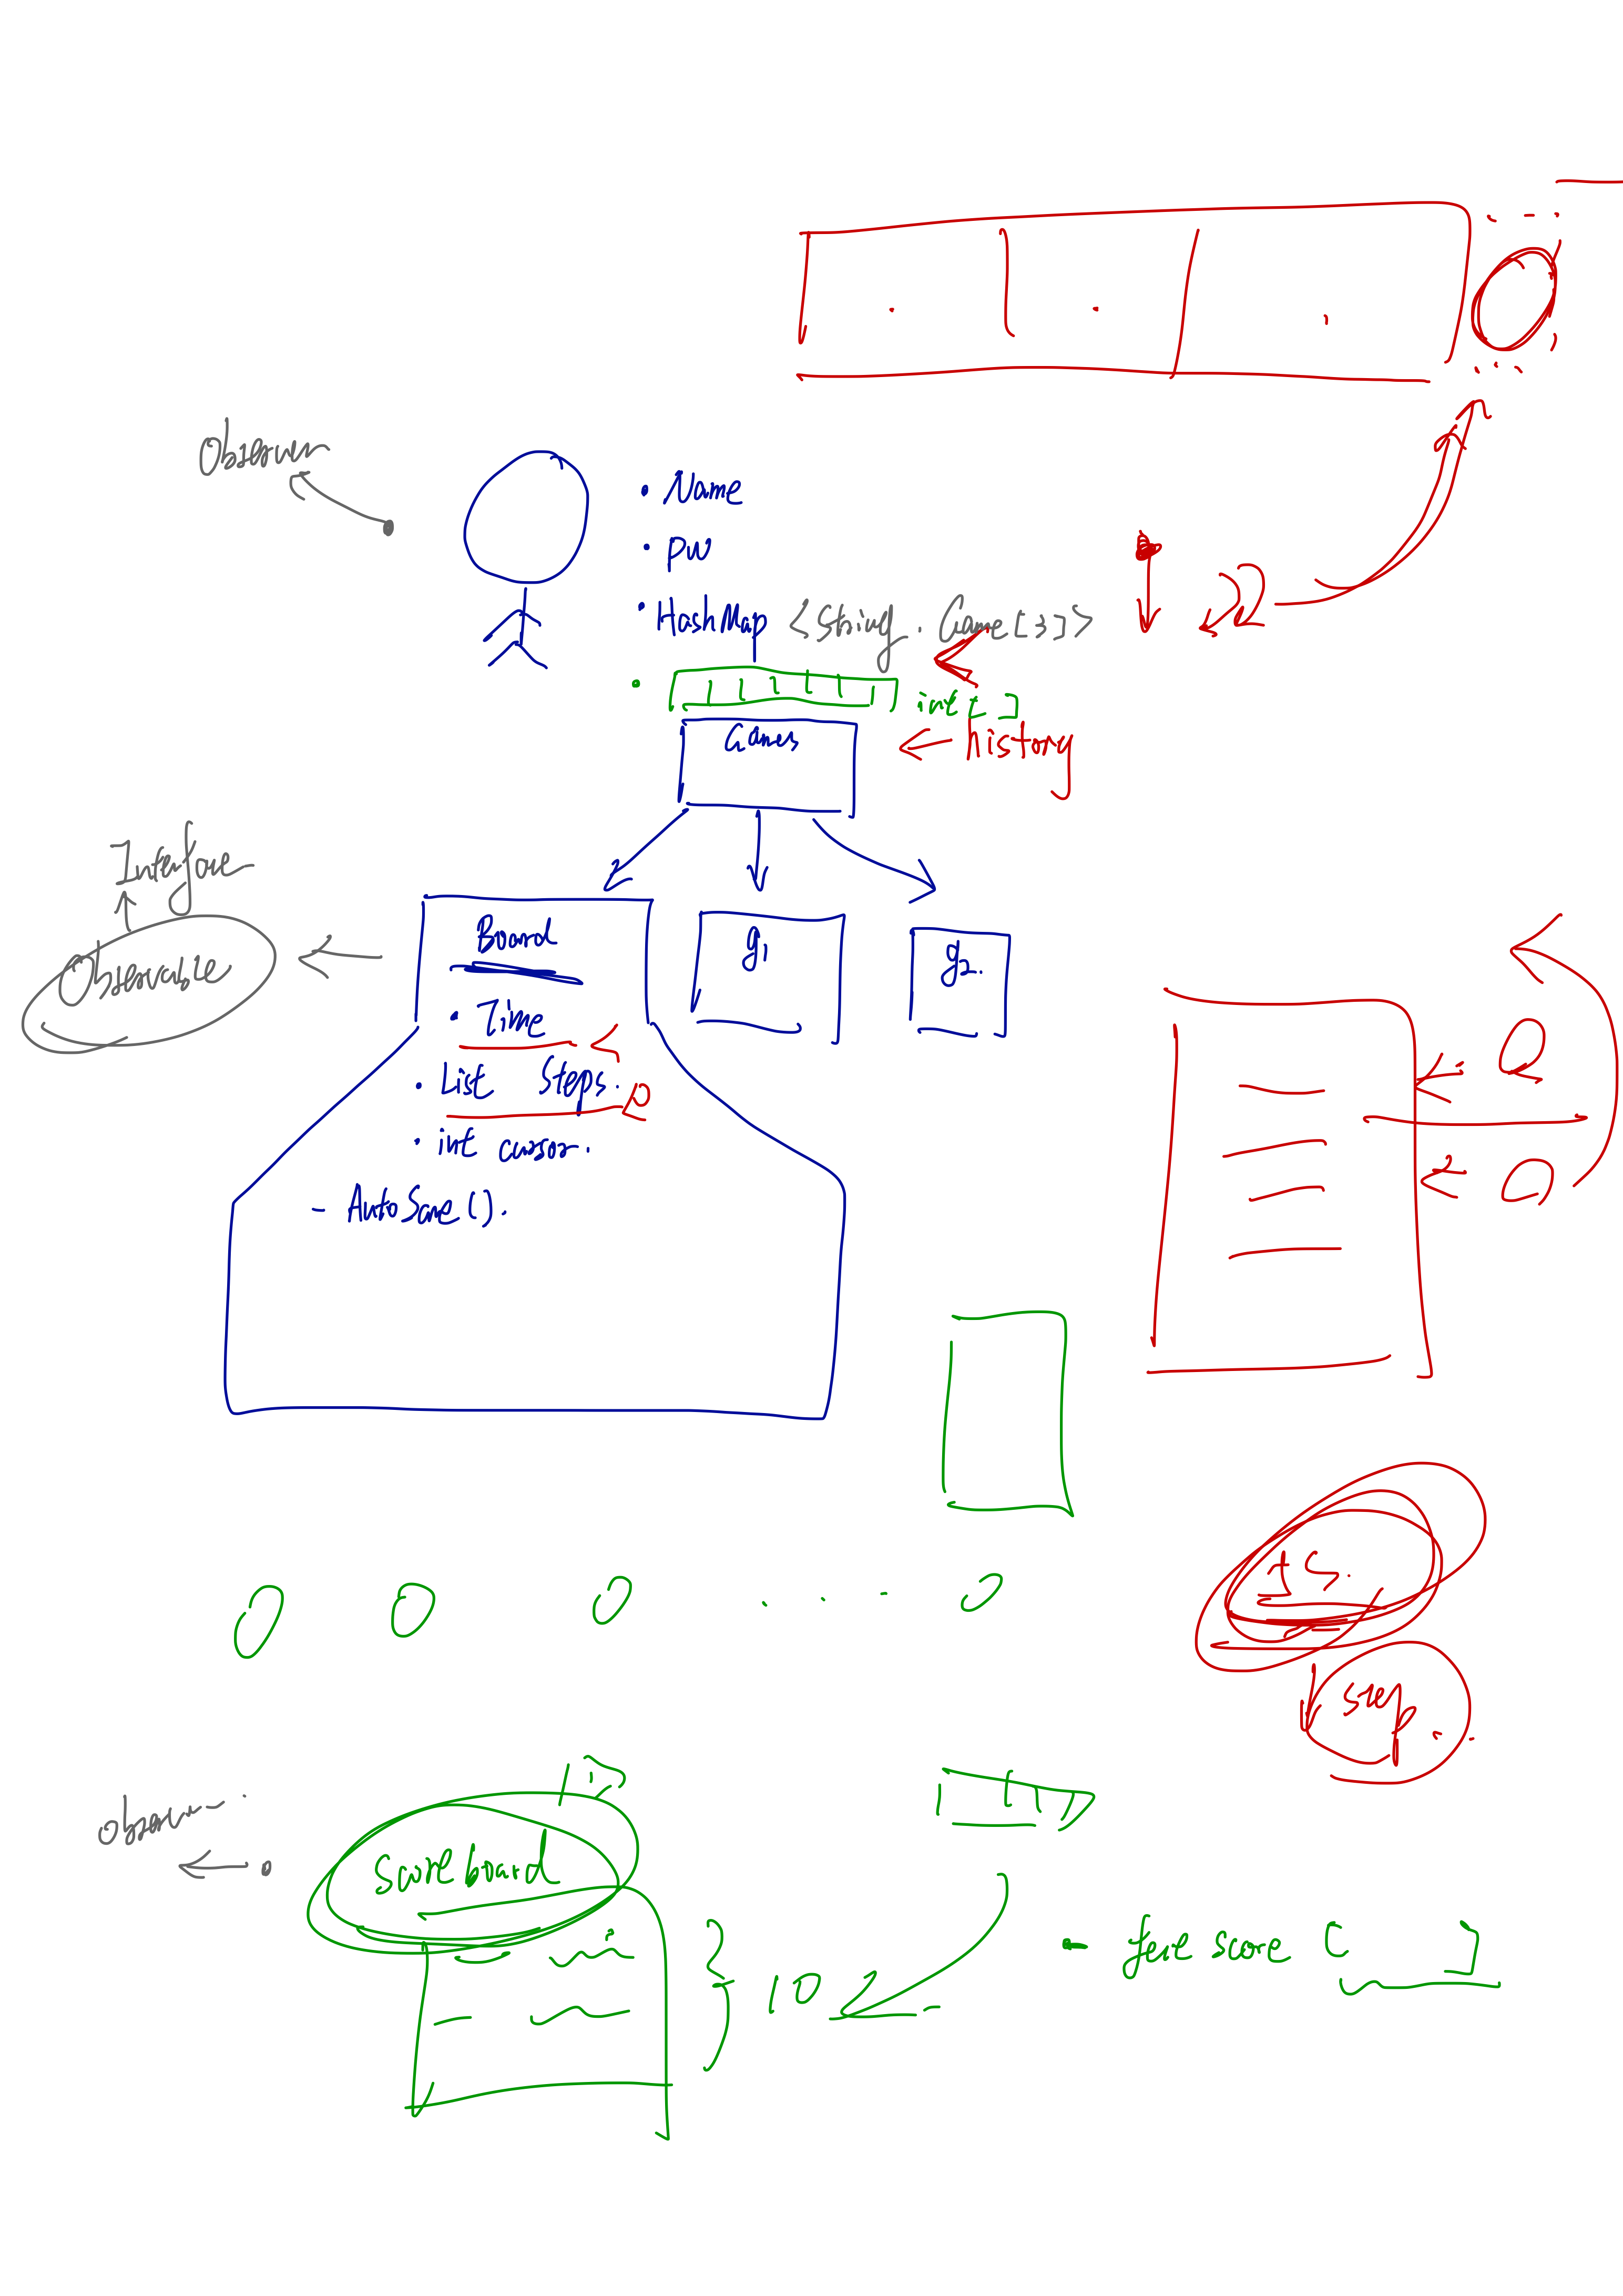 Observer
• Name
• pw
• HashMap <String, Game[3]>
• int[ ]
Games
← history
Interface
Observable
Board
g1
g2.
• Time
• List Steps.
• int cursor.
- AutoSave().
step.
Scoreboard
10
score [ ]